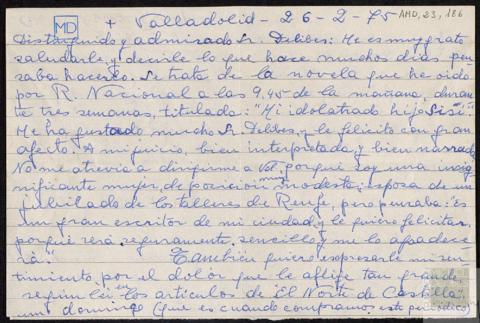 MD
+ Valladolid - 26-2-75
AMD, 23, 186
Distinguido y admirado Sr. Delibes: Me es muy grato
saludarle, y decirle lo que hace muchos días pen
saba hacerlo. Se trata de la novela que he oido
por R. Nacional a las 9,45 de la mañana, duran
te tres semanas, titulado: "Mi idolatrado hijo Sisi".
Me ha gustado mucho Sr. Delibes, y le felicito con gran
afecto. A mi juicio, bien interpretada y bien narrada
No me atrevia a dirigirme a Vd. porque soy una insig
nificante mujer, de posición modesta; esposa de un
jubilado de los talleres de Renfe, pero pensaba: "es
un gran escritor de mi ciudad y le quiero felicitar,
porque será seguramente sencillo y me lo agradece
rá".
Tambien quiero expresarle mi sen
timiento, por el dolor que le aflije tan grande,
según leí en los articulos de "El Norte de Castilla"
un domingo (que es cuando compramos este periodico)